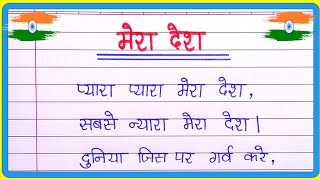 मेरा देश
प्यारा प्यारा मेरा देश,
सबसे न्यारा मेरा देश|
दुनिया जिस पर गर्व करे,